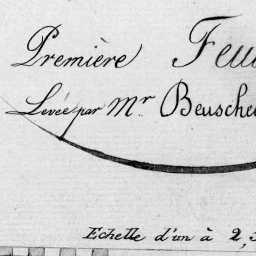 Première Feu
Levée par Mr Beusche
Echelle d'un à 2,5